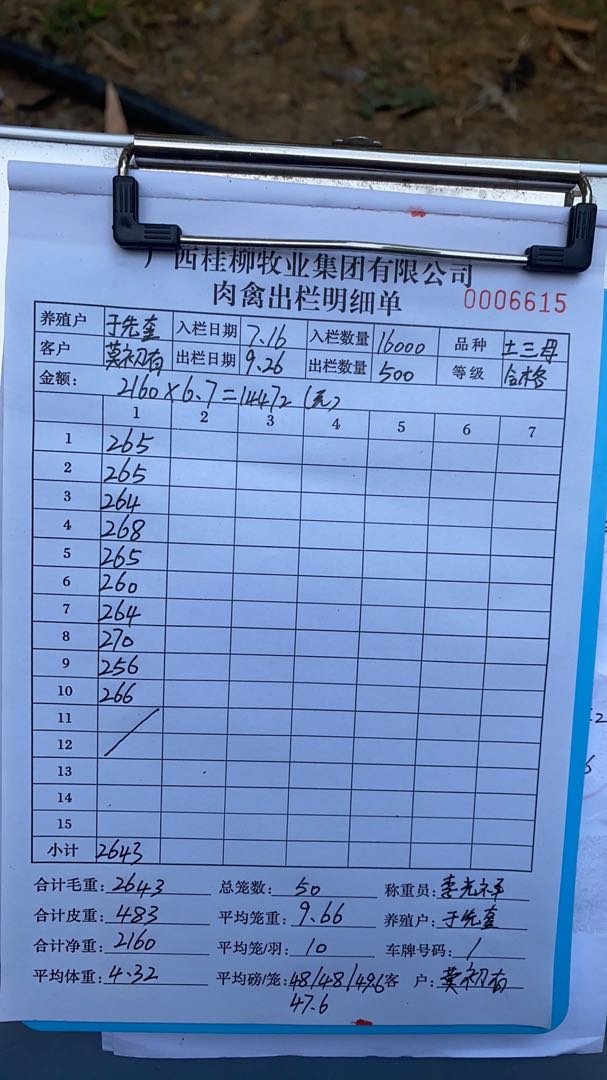 广西桂柳牧业集团有限公司
肉禽出栏明细单 0006615
养殖户 于先奎 入栏日期 7.16 入栏数量 16000 品种 土三母
客户 莫初有 出栏日期 9.26 出栏数量 500 等级 合格
金额: 2160×6.7=14472(元)
1 2 3 4 5 6 7
1 265
2 265
3 264
4 268
5 265
6 260
7 264
8 270
9 256
10 266
11
12
13
14
15
小计 2643
合计毛重: 2643 总笼数: 50 称重员: 李光祥
合计皮重: 483 平均笼重: 9.66 养殖户: 于先奎
合计净重: 2160 平均笼/羽: 10 车牌号码: /
平均体重: 4.32 平均磅/笼: 48/48/49.6 客 户: 莫初有
47.6